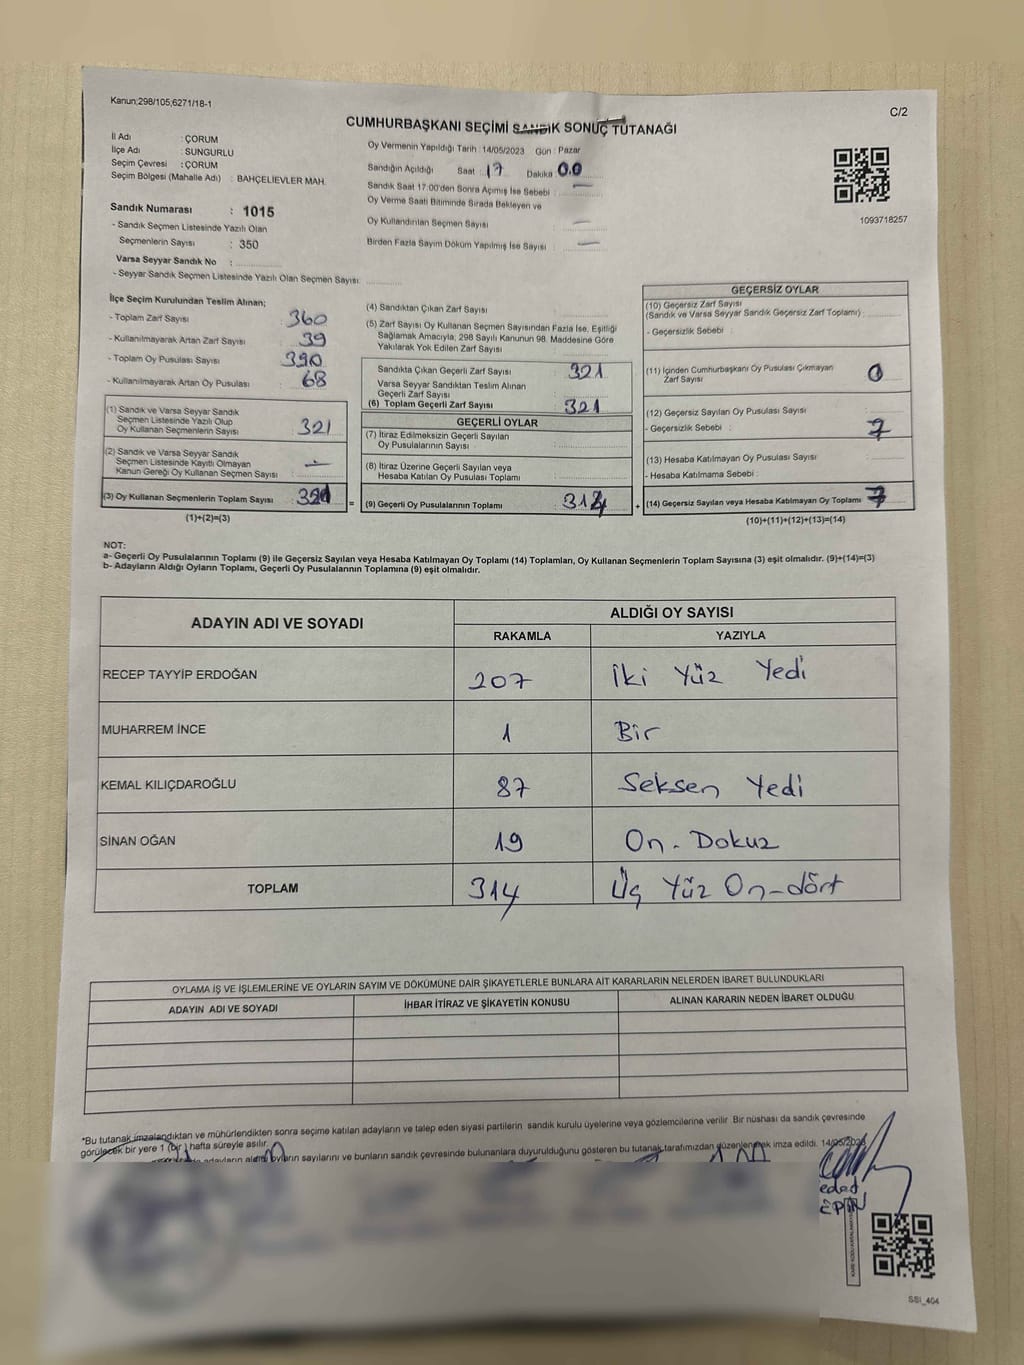 Kanun;298/105,6271/18-1
C/2
CUMHURBAŞKANI SEÇİMİ SANDIK SONUÇ TUTANAĞI
İl Adı : ÇORUM
İlçe Adı : SUNGURLU
Seçim Çevresi : ÇORUM
Seçim Bölgesi (Mahalle Adı) : BAHÇELİEVLER MAH.
Oy Vermenin Yapıldığı Tarih : 14/05/2023 Gün : Pazar
Sandığın Açıldığı Saat : 17 Dakika 00
Sandık Saat 17.00'den Sonra Açımış İse Sebebi : —
Oy Verme Saati Bitiminde Sırada Bekleyen ve
Oy Kullandırılan Seçmen Sayısı : —
Birden Fazla Sayım Döküm Yapılmış İse Sayısı : —
1093718257
Sandık Numarası : 1015
- Sandık Seçmen Listesinde Yazılı Olan
Seçmenlerin Sayısı : 350
Varsa Seyyar Sandık No :
- Seyyar Sandık Seçmen Listesinde Yazılı Olan Seçmen Sayısı:
İlçe Seçim Kurulundan Teslim Alınan;
- Toplam Zarf Sayısı : 360
- Kullanılmayarak Artan Zarf Sayısı : 39
- Toplam Oy Pusulası Sayısı : 390
- Kullanılmayarak Artan Oy Pusulası : 68
(1) Sandık ve Varsa Seyyar Sandık
Seçmen Listesinde Yazılı Olup
Oy Kullanan Seçmenlerin Sayısı : 321
(2) Sandık ve Varsa Seyyar Sandık
Seçmen Listesinde Kayıtlı Olmayan
Kanun Gereği Oy Kullanan Seçmen Sayısı : —
(3) Oy Kullanan Seçmenlerin Toplam Sayısı : 321
(1)+(2)=(3)
(4) Sandıktan Çıkan Zarf Sayısı :
(5) Zarf Sayısı Oy Kullanan Seçmen Sayısından Fazla İse, Eşitliği
Sağlamak Amacıyla; 298 Sayılı Kanunun 98. Maddesine Göre
Yakılarak Yok Edilen Zarf Sayısı :
Sandıkta Çıkan Geçerli Zarf Sayısı : 321
Varsa Seyyar Sandıktan Teslim Alınan
Geçerli Zarf Sayısı :
(6) Toplam Geçerli Zarf Sayısı : 321
GEÇERLİ OYLAR
(7) İtiraz Edilmeksizin Geçerli Sayılan
Oy Pusulalarının Sayısı :
(8) İtiraz Üzerine Geçerli Sayılan veya
Hesaba Katılan Oy Pusulası Toplamı :
= (9) Geçerli Oy Pusulalarının Toplamı : 314
GEÇERSİZ OYLAR
(10) Geçersiz Zarf Sayısı
(Sandık ve Varsa Seyyar Sandık Geçersiz Zarf Toplamı) :
- Geçersizlik Sebebi :
(11) İçinden Cumhurbaşkanı Oy Pusulası Çıkmayan
Zarf Sayısı : 0
(12) Geçersiz Sayılan Oy Pusulası Sayısı :
- Geçersizlik Sebebi : 7
(13) Hesaba Katılmayan Oy Pusulası Sayısı :
- Hesaba Katılmama Sebebi :
+ (14) Geçersiz Sayılan veya Hesaba Katılmayan Oy Toplamı : 7
(10)+(11)+(12)+(13)=(14)
NOT:
a- Geçerli Oy Pusulalarının Toplamı (9) ile Geçersiz Sayılan veya Hesaba Katılmayan Oy Toplamı (14) Toplamları, Oy Kullanan Seçmenlerin Toplam Sayısına (3) eşit olmalıdır. (9)+(14)=(3)
b- Adayların Aldığı Oyların Toplamı, Geçerli Oy Pusulalarının Toplamına (9) eşit olmalıdır.
ADAYIN ADI VE SOYADI
ALDIĞI OY SAYISI
RAKAMLA YAZIYLA
RECEP TAYYİP ERDOĞAN 207 İki Yüz Yedi
MUHARREM İNCE 1 Bir
KEMAL KILIÇDAROĞLU 87 Seksen Yedi
SİNAN OĞAN 19 On - Dokuz
TOPLAM 314 Üç Yüz On-dört
OYLAMA İŞ VE İŞLEMLERİNE VE OYLARIN SAYIM VE DÖKÜMÜNE DAİR ŞİKAYETLERLE BUNLARA AİT KARARLARIN NELERDEN İBARET BULUNDUKLARI
ADAYIN ADI VE SOYADI İHBAR İTİRAZ VE ŞİKAYETİN KONUSU ALINAN KARARIN NEDEN İBARET OLDUĞU
*Bu tutanak imzalandıktan ve mühürlendikten sonra seçime katılan adayların ve talep eden siyasi partilerin sandık kurulu üyelerine veya gözlemcilerine verilir. Bir nüshası da sandık çevresinde
görülecek bir yere 1 (bir) hafta süreyle asılır.
adayların aldığı oyların sayılarını ve bunların sandık çevresinde bulunanlara duyurulduğunu gösteren bu tutanak tarafımızdan düzenlenerek imza edildi. 14/05/2023
SSI_404